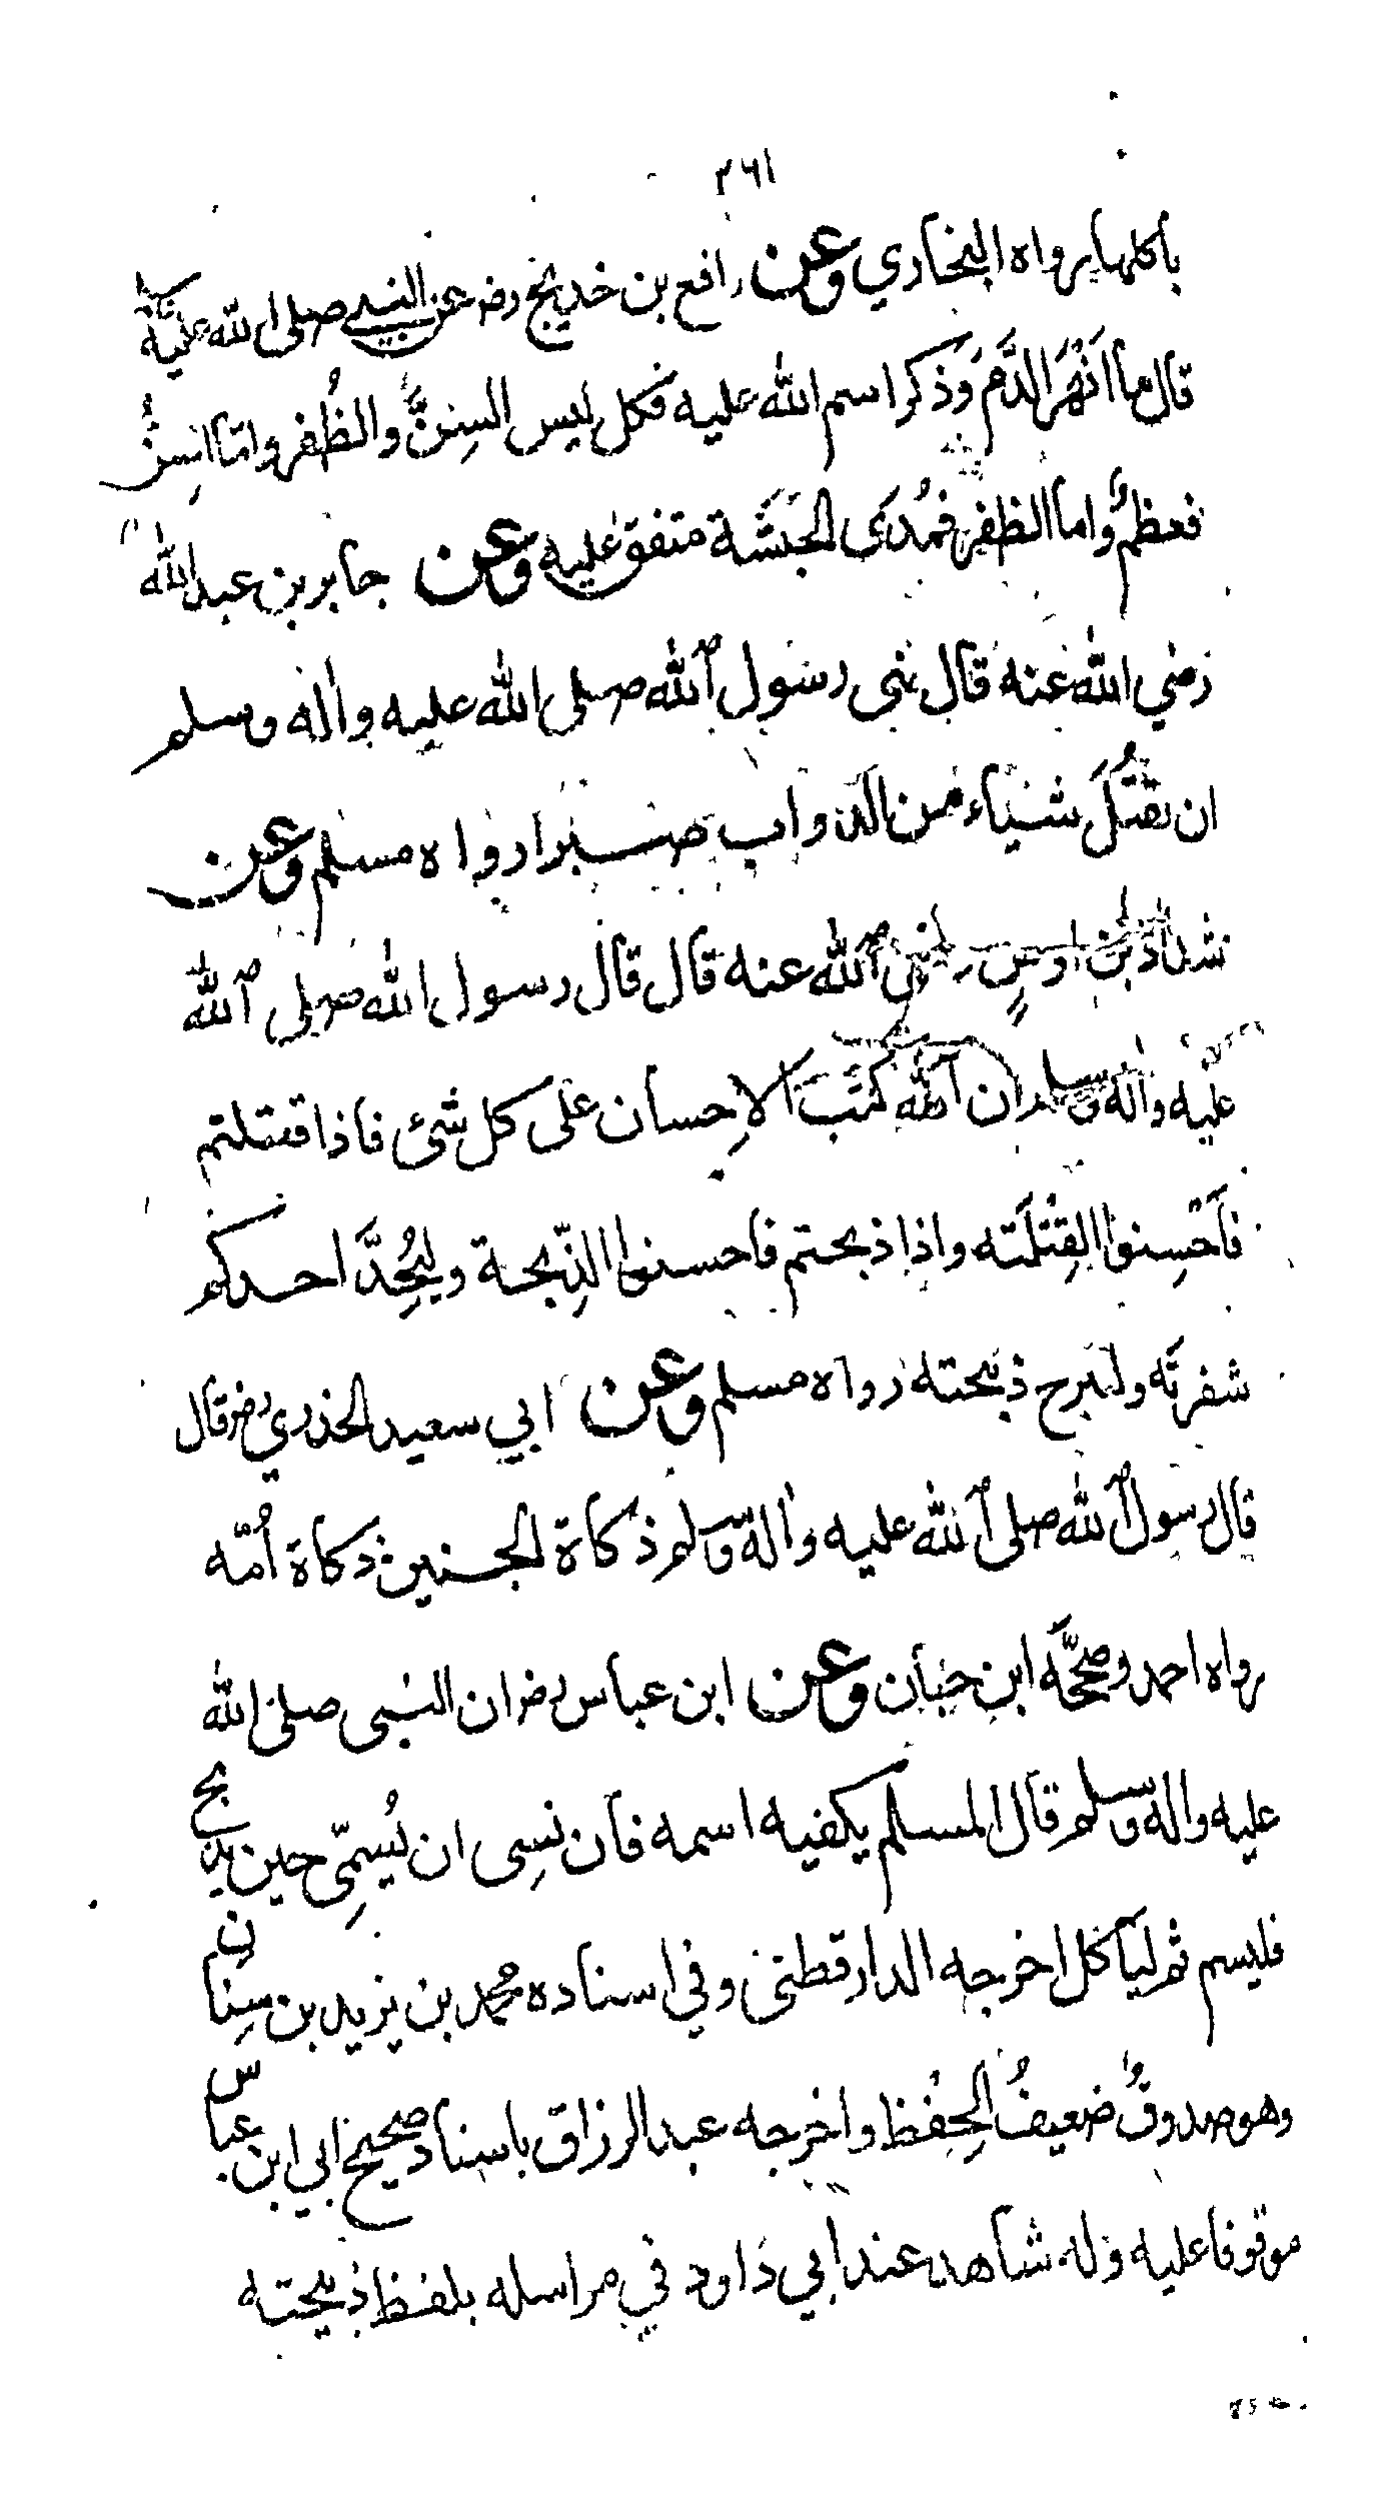 ٢٦١
باكلها رواه البخاري وعن رافع بن خديج رض عن النبي صلى الله عليه
قال ما اَنْهَرَ الدَّمَ وَذكر اسم الله عليه فكل ليس السِنَّ والظُفر واما السِنُّ
فعظمٌ واما الظفر فمُدَى الحَبَشَة متفق عليه وعن جابر بن عبد الله
رضي الله عنه قال نهى رسول الله صلى الله عليه واله وسلم
ان نقتُلَ شيئاء من الدواب صبرا رواه مسلم وعن
شداد بن اوسٍ رضي الله عنه قال قال رسول الله صلى الله
عليه واله وسلم ان الله كَتَبَ الاِحسان على كل شئ فاذا قتلتم
فاَحْسِنوا القِتْلَته واذا ذبحتم فاحسنوا الذِبحة وليُحِدَّ احدكم
شفرته وليرح ذبيحته رواه مسلم وعن ابي سعيد الخذري رض قال
قال رسول الله صلى الله عليه واله وسلم ذكاة الجنين ذكاة اُمّه
رواه احمد وصحَّحَه ابن حبان وعن ابن عباس رض ان النبى صلى الله
عليه واله وسلم قال المسلم يكفيه اسمه فان نسِى ان يُسمِّى حين يذبح
فليسم ثم لياكل اخرجه الدارقطنى وفي اسناده محمد بن يزيد بن سِنان
وهو صدوقٌ ضعيفُ الحِفْظ واخرجه عبد الرزاق باسناد صحيح ابي ابن عباس
موقوفا عليه وله شاهد عند ابي داود في مراسله بلفظ ذبيحته